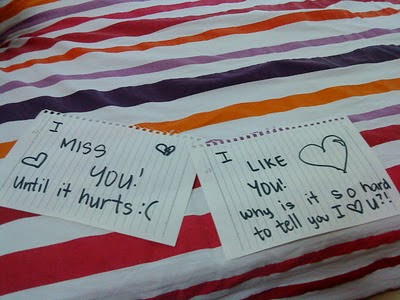 I
MISS
YOU!
Until it hurts :(
I
LIKE
YOU!
why is it so hard
to tell you I ♡ u?!